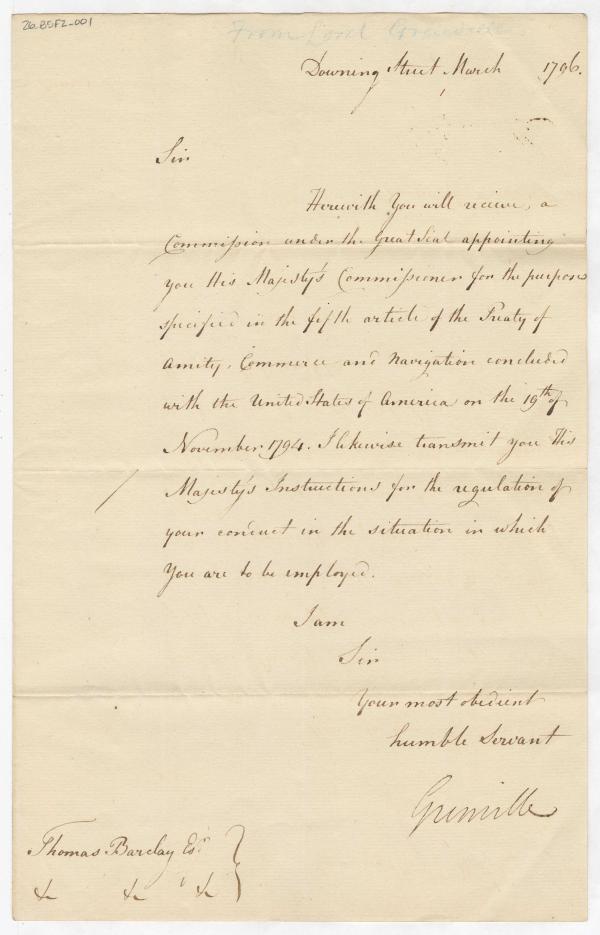 26-BSF2-001
From Lord Grenville
Downing Street March 1796.
Sir
Herewith You will receive, a
Commission under the Great Seal appointing
you His Majesty's Commissioner for the purpose
specified in the fifth article of the Treaty of
Amity, Commerce and Navigation concluded
with the United States of America on the 19th of
November 1794. I likewise transmit you His
Majesty's Instructions for the regulation of
your conduct in the situation in which
You are to be employed.
I am
Sir
Your most obedient
humble Servant
Grenville
Thomas Barclay Esqr.
&c &c &c